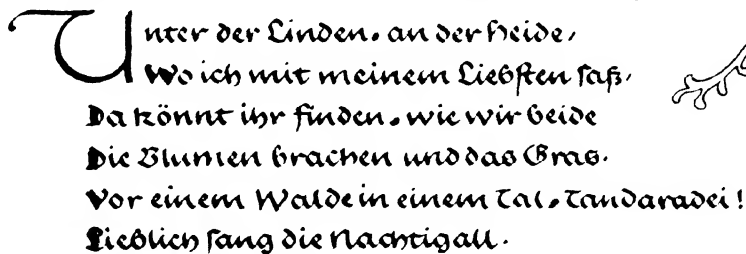 Unter der Linden. an der Heide,
Wo ich mit meinem Liebsten saß.
Da könnt ihr finden. wie wir beide
Die Blumen brachen und das Gras.
Vor einem Walde in einem Tal. Tandaradei!
Lieblich sang die Nachtigall.